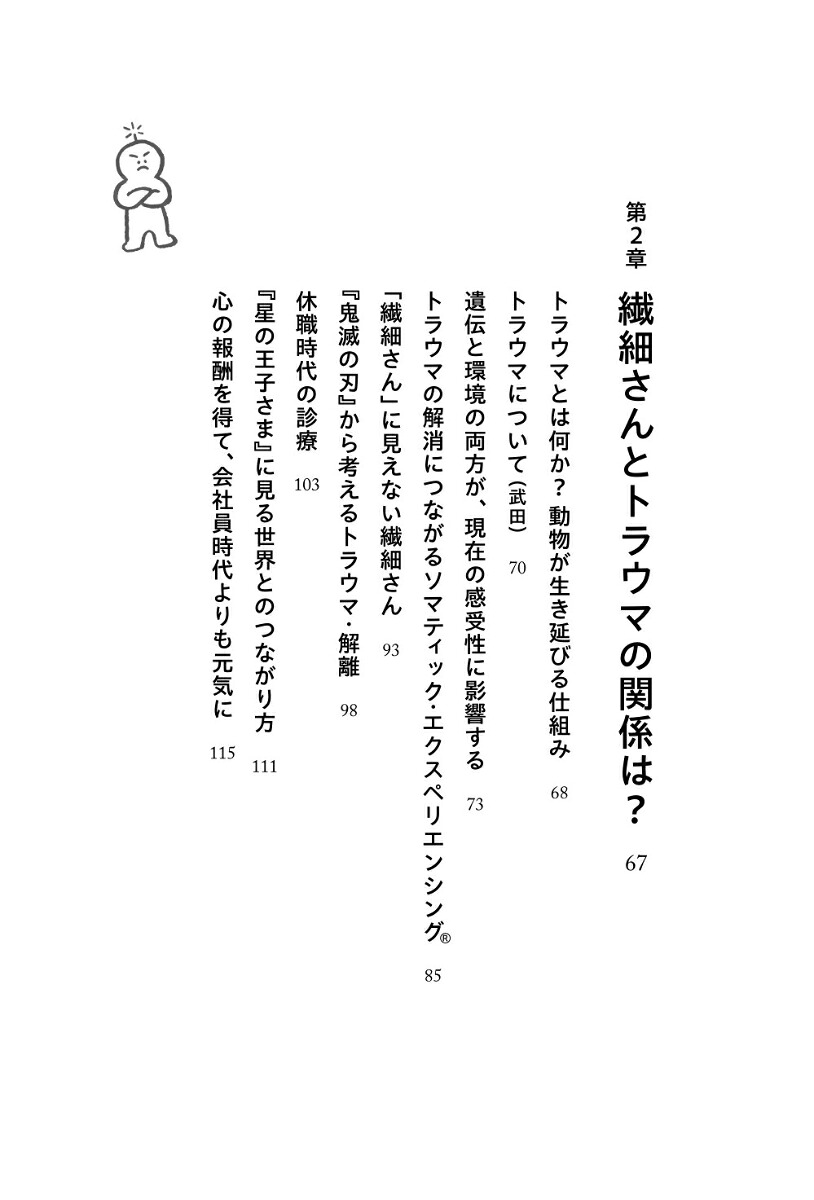 第2章 繊細さんとトラウマの関係は？ 67
トラウマとは何か？ 動物が生き延びる仕組み 68
トラウマについて（武田） 70
遺伝と環境の両方が、現在の感受性に影響する 73
トラウマの解消につながるソマティック・エクスペリエンシング® 85
「繊細さん」に見えない繊細さん 93
『鬼滅の刃』から考えるトラウマ・解離 98
休職時代の診療 103
『星の王子さま』に見る世界とのつながり方 111
心の報酬を得て、会社員時代よりも元気に 115